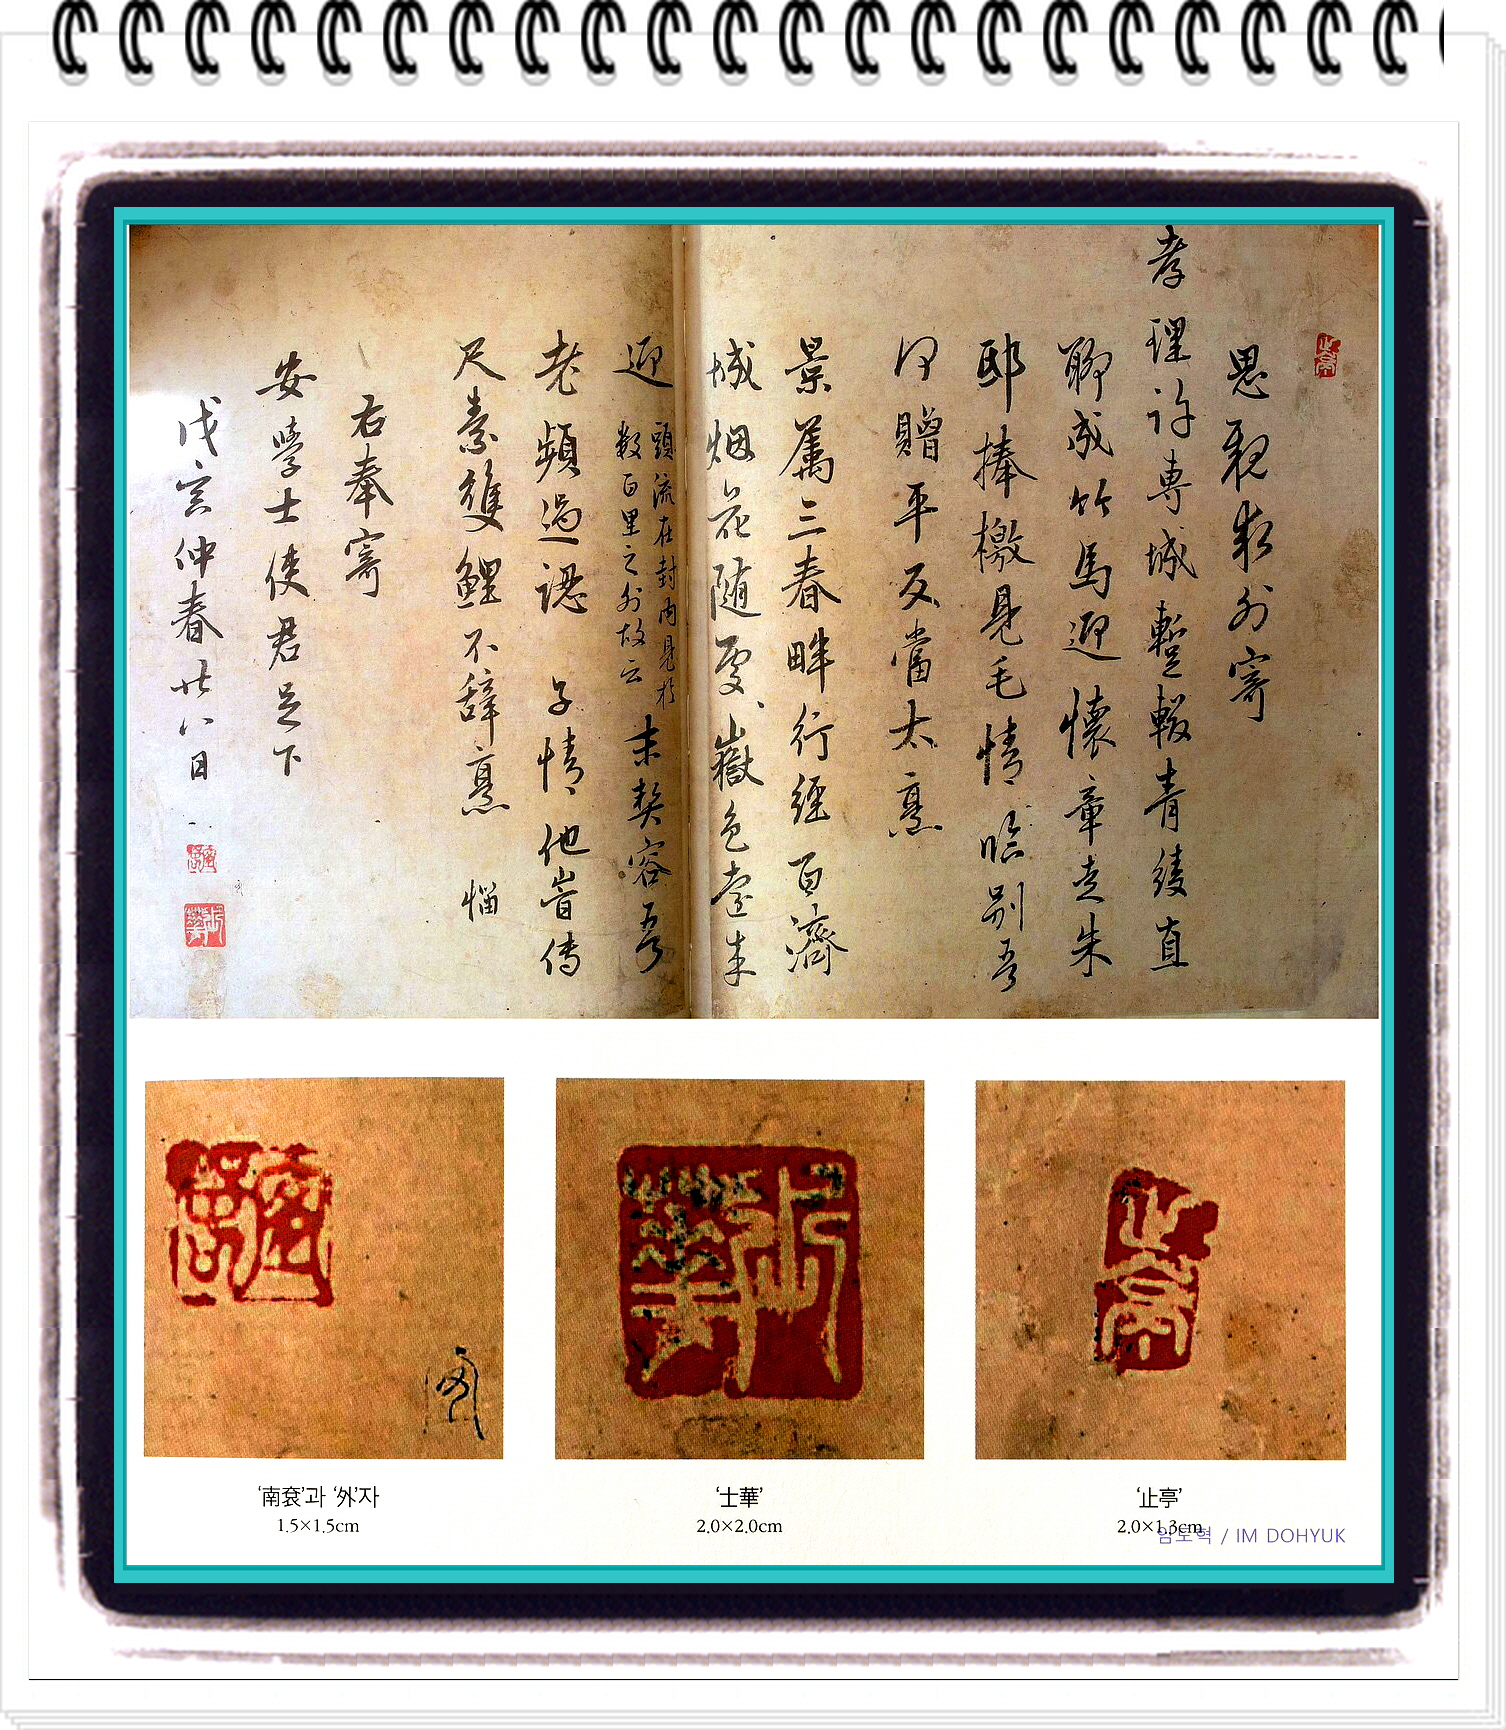 止亭
思親 外寄
孝理許専城暫輟青綾直
聊成竹馬迎懷章走朱
邸捧檄見毛情臨別吾
何贈平反當太憙
景 三春畔行經百濟
城烟花随處、嶽色遠来
迎 頭流在封内見於
數百里之外故云
末契容吾
老頻過認 子情他旹傳
尺素雙鯉不辞憙 惱
右奉寄
安學士使君足下
戊寅仲春廿八日
士華
士華
止亭
‘南袞’과 ‘外’자
1.5×1.5cm
‘士華’
2.0×2.0cm
‘止亭’
2.0×1.3cm
임도혁 / IM DOHYUK